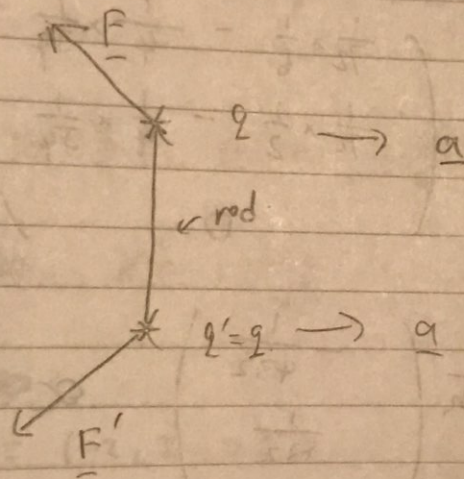 F
q → a
← rod
q'=q → a
F'